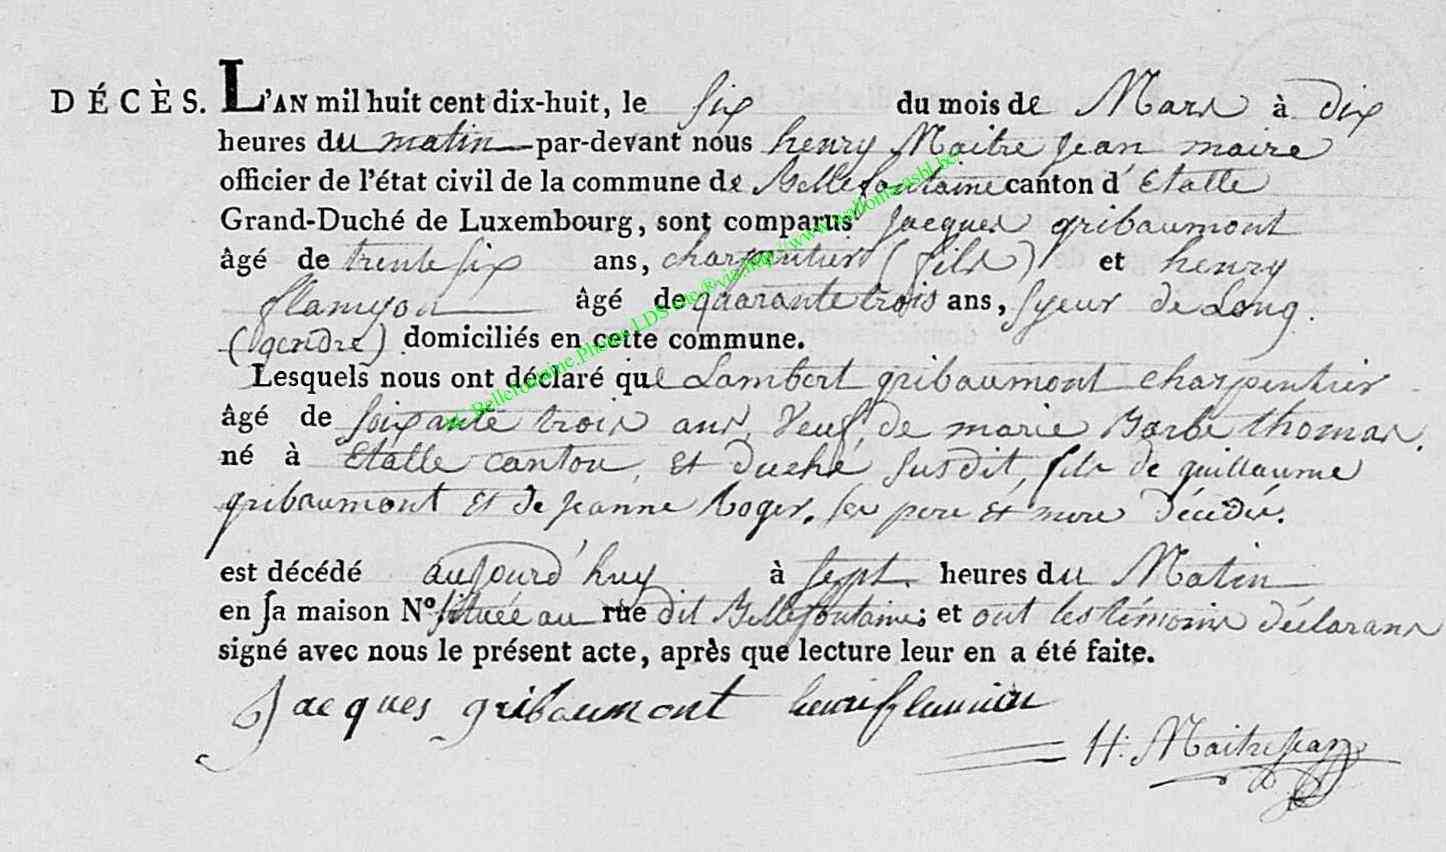 DÉCÈS. L'AN mil huit cent dix-huit, le six du mois de Mars à dix
heures du matin par-devant nous henry Maitre jean maire
officier de l'état civil de la commune de Bellefontaine canton d'Etalle
Grand-Duché de Luxembourg, sont comparus Jacques gribaumont
âgé de trente six ans, charpentier (fils) et henry
flamion âgé de quarante trois ans, syeur de Long.
(gendre) domiciliés en cette commune.
Lesquels nous ont déclaré que Lambert gribaumont charpentier
âgé de soixante trois ans, Veuf de marie Barbe thomas,
né à Etalle canton, et duché susdit, fils de guillaume
gribaumont et de jeanne Roger, ses pere et mere décédés.
est décédé aujourd'huy à sept heures du Matin
en sa maison N° située au rue dit Bellefontaine; et ont les témoins déclarans
signé avec nous le présent acte, après que lecture leur en a été faite.
Jacques gribaumont henri flamion
H: Maitrejean
Bellefontaine.Photos LDS